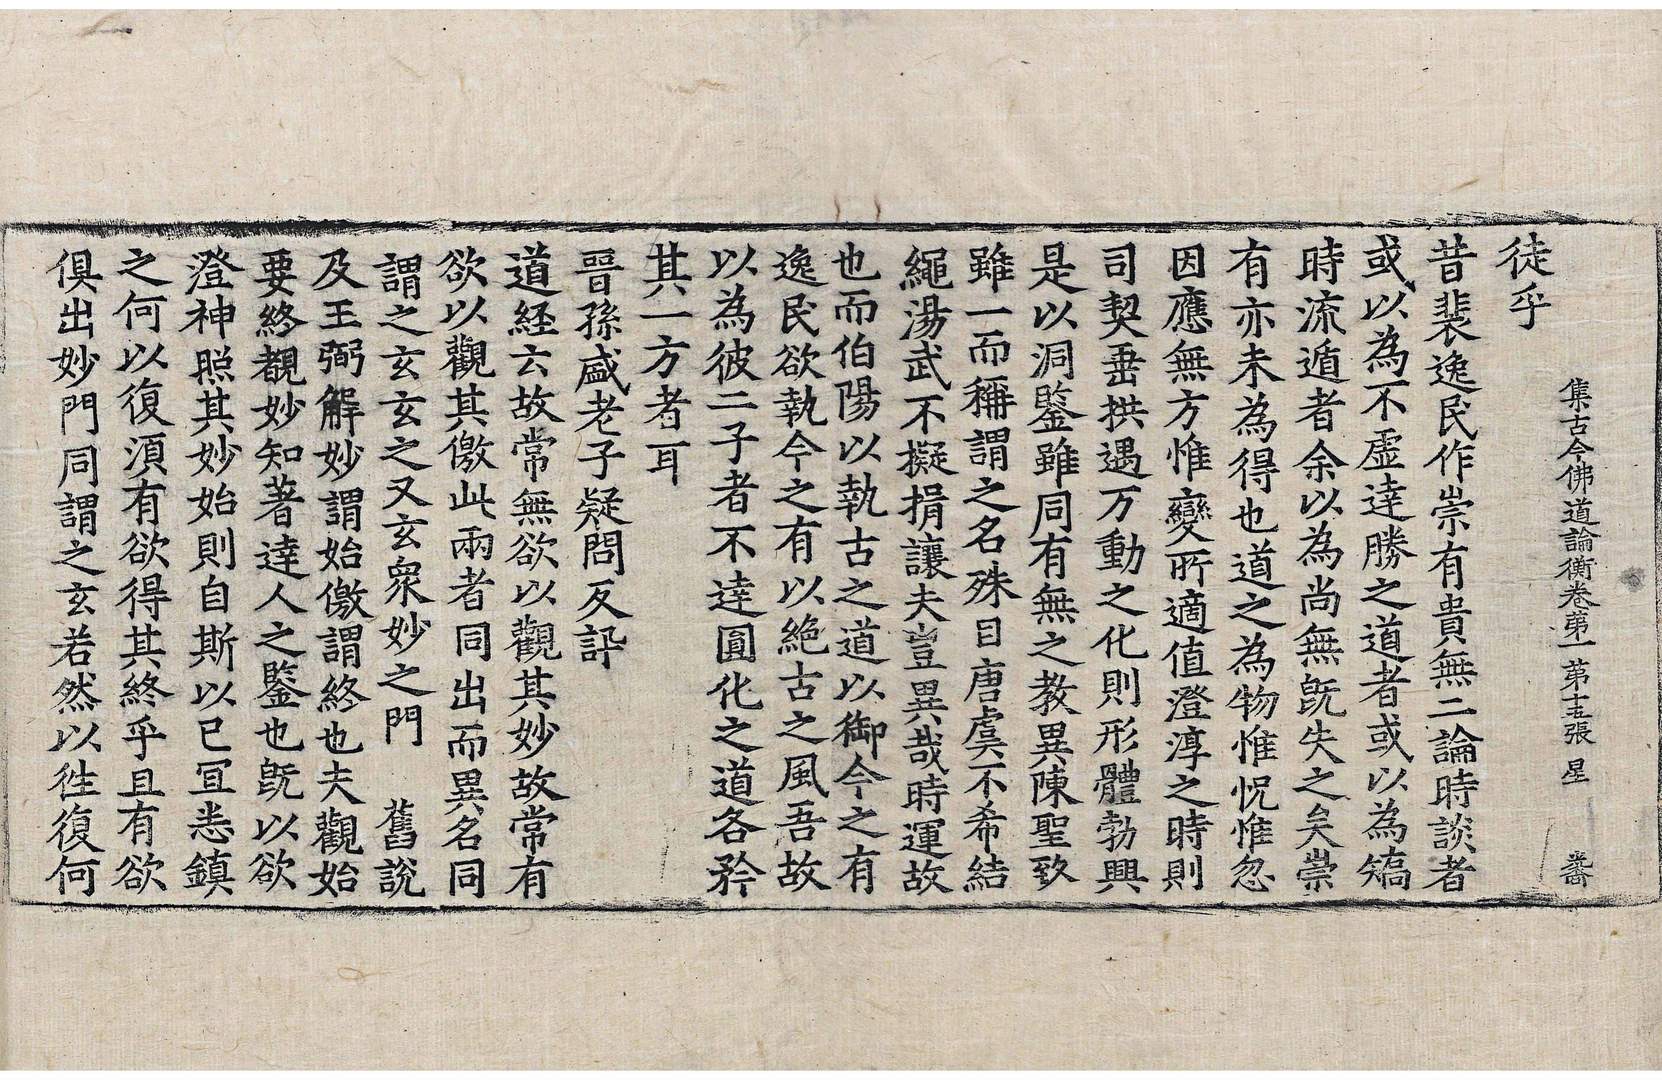 集古今佛道論衡卷第一 第十五張 星
徒乎
昔裴逸民作崇有貴無二論時談者
或以為不虛達勝之道者或以為矯
時流遁者余以為尚無旣失之矣崇
有亦未為得也道之為物惟怳惟忽
因應無方惟變所適值澄渟之時則
司契垂拱遇万動之化則形體勃興
是以洞鑒雖同有無之教異陳聖致
雖一而稱謂之名殊自唐虞不希結
繩湯武不擬揖讓夫豈異哉時運故
也而伯陽以執古之道以御今之有
逸民欲執今之有以絕古之風吾故
以為彼二子者不達圓化之道各矜
其一方者耳
晉孫盛老子疑問反訊
道経云故常無欲以觀其妙故常有
欲以觀其儌此兩者同出而異名同
謂之玄玄之又玄衆妙之門 舊說
及王弼解妙謂始儌謂終也夫觀始
要終覩妙知著達人之鑒也旣以欲
澄神照其妙始則自斯以已宜悉鎮
之何以復湏有欲得其終乎且有欲
俱出妙門同謂之玄若然以徃復何